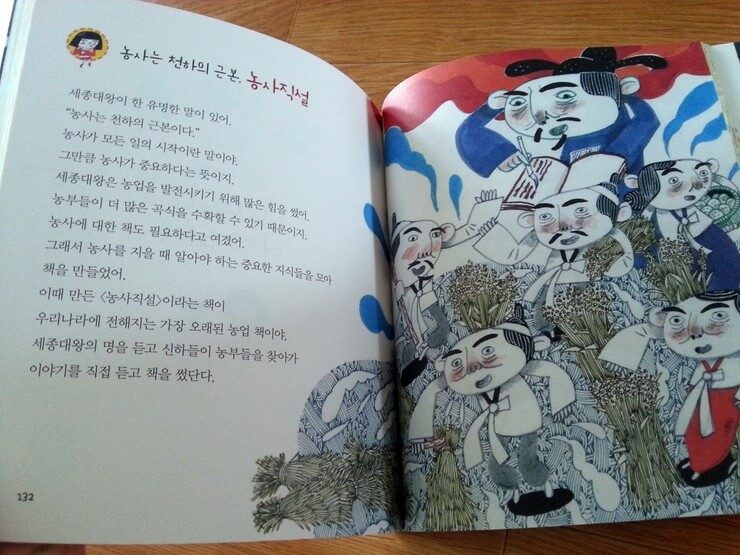 농사는 천하의 근본, 농사직설
세종대왕이 한 유명한 말이 있어.
“농사는 천하의 근본이다.”
농사가 모든 일의 시작이란 말이야.
그만큼 농사가 중요하다는 뜻이지.
세종대왕은 농업을 발전시키기 위해 많은 힘을 썼어.
농부들이 더 많은 곡식을 수확할 수 있기 때문이지.
농사에 대한 책도 필요하다고 여겼어.
그래서 농사를 지을 때 알아야 하는 중요한 지식들을 모아
책을 만들었어.
이때 만든 〈농사직설〉이라는 책이
우리나라에 전해지는 가장 오래된 농업 책이야.
세종대왕의 명을 듣고 신하들이 농부들을 찾아가
이야기를 직접 듣고 책을 썼단다.
132